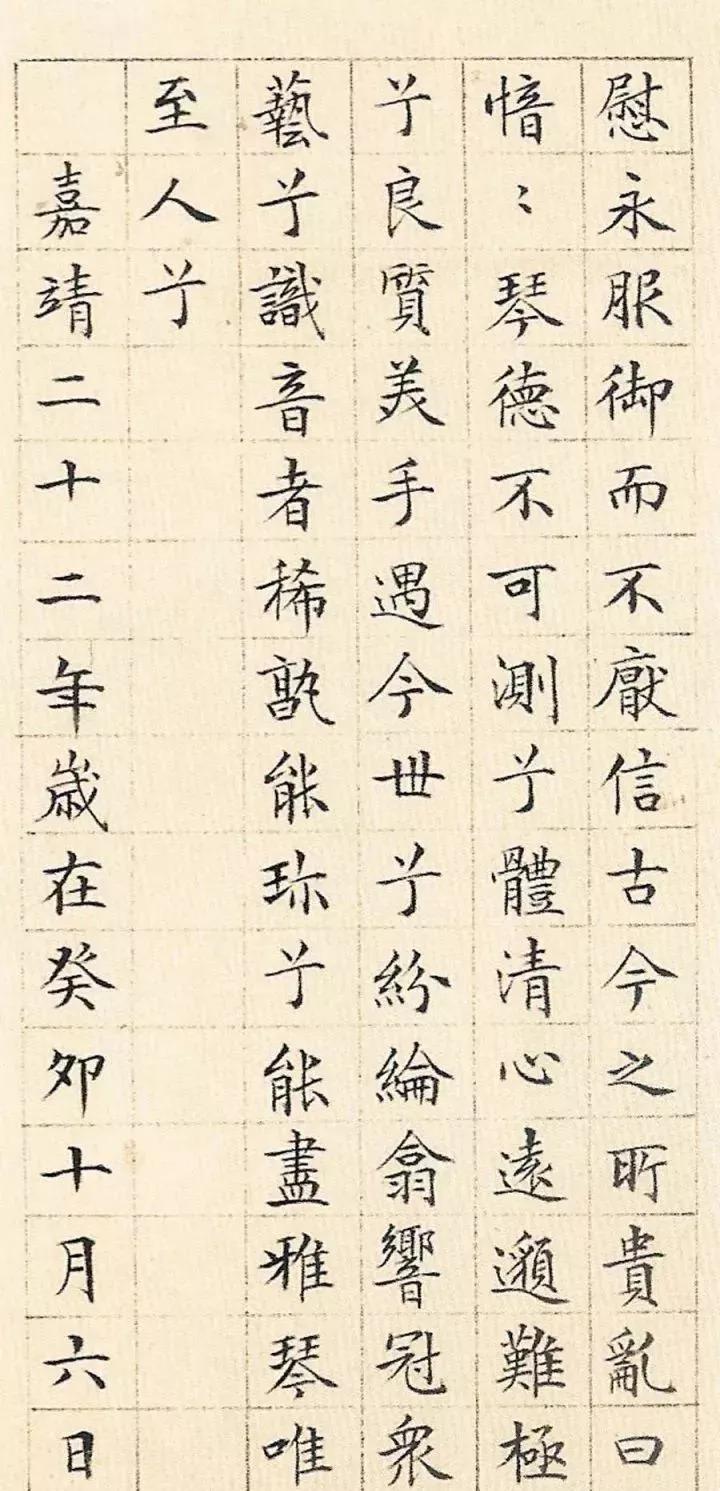 慰永服御而不厭信古今之所貴亂曰
愔〻琴德不可測兮體清心遠邈難極
兮良質美手遇今世兮紛綸翕響冠衆
藝兮識音者稀孰能珍兮能盡雅琴唯
至人兮
嘉靖二十二年歲在癸卯十月六日